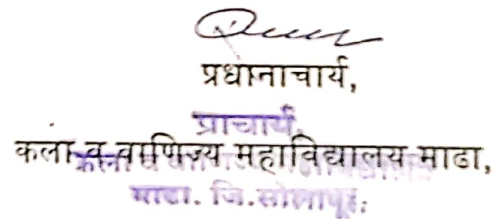 प्रधानाचार्य,
प्राचार्य,
कला व वाणिज्य महाविद्यालय माढा,
माढा. जि.सोलापूर.